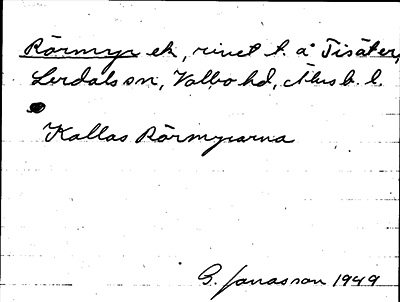 Rörmyr ek, rinet t. å Tisäter,
Lerdals sn, Valbo hd, Älvsb. l.
Kallas Rörmyrarna
G. Jonasson 1949